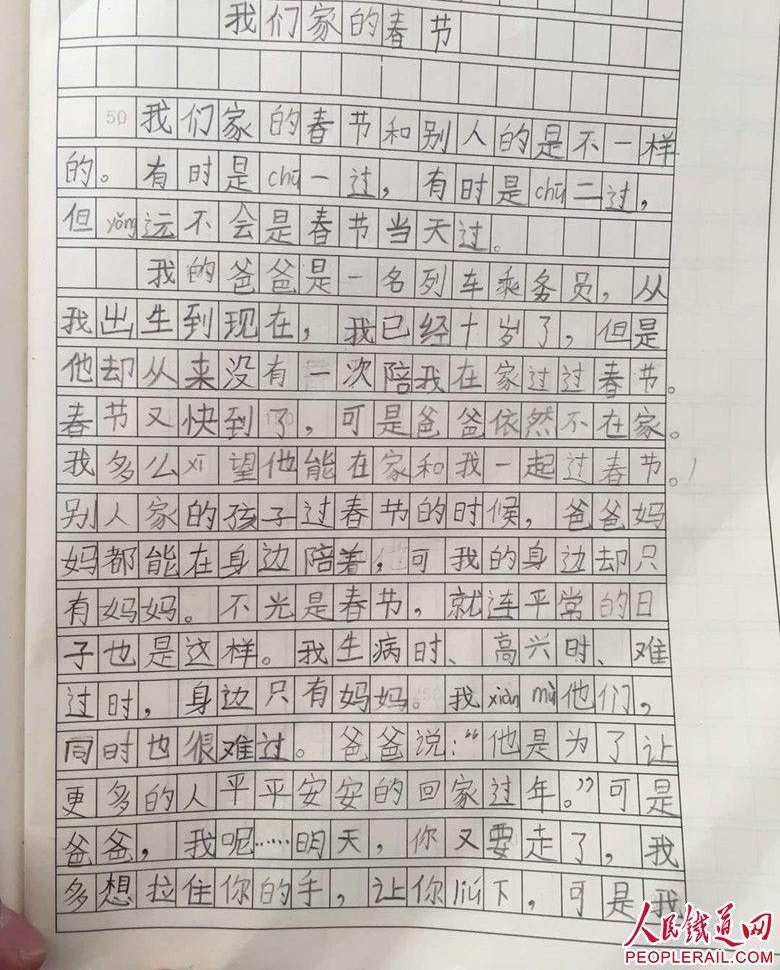 我们家的春节
50
我们家的春节和别人的是不一样
的。有时是chū一过，有时是chū二过，
但yǒng远不会是春节当天过。
我的爸爸是一名列车乘务员，从
我出生到现在，我已经十岁了，但是
他却从来没有一次陪我在家过过春节。
春节又快到了，可是爸爸依然不在家。
我多么xī望他能在家和我一起过春节。
别人家的孩子过春节的时候，爸爸妈
妈都能在身边陪着，可我的身边却只
有妈妈。不光是春节，就连平常的日
子也是这样。我生病时、高兴时、难
过时，身边只有妈妈。我xiàn mù他们，
同时也很难过。爸爸说：“他是为了让
更多的人平平安安的回家过年。”可是
爸爸，我呢……明天，你又要走了，我
多想拉住你的手，让你liú下，可是我
人民铁道网
PEOPLERAIL.COM